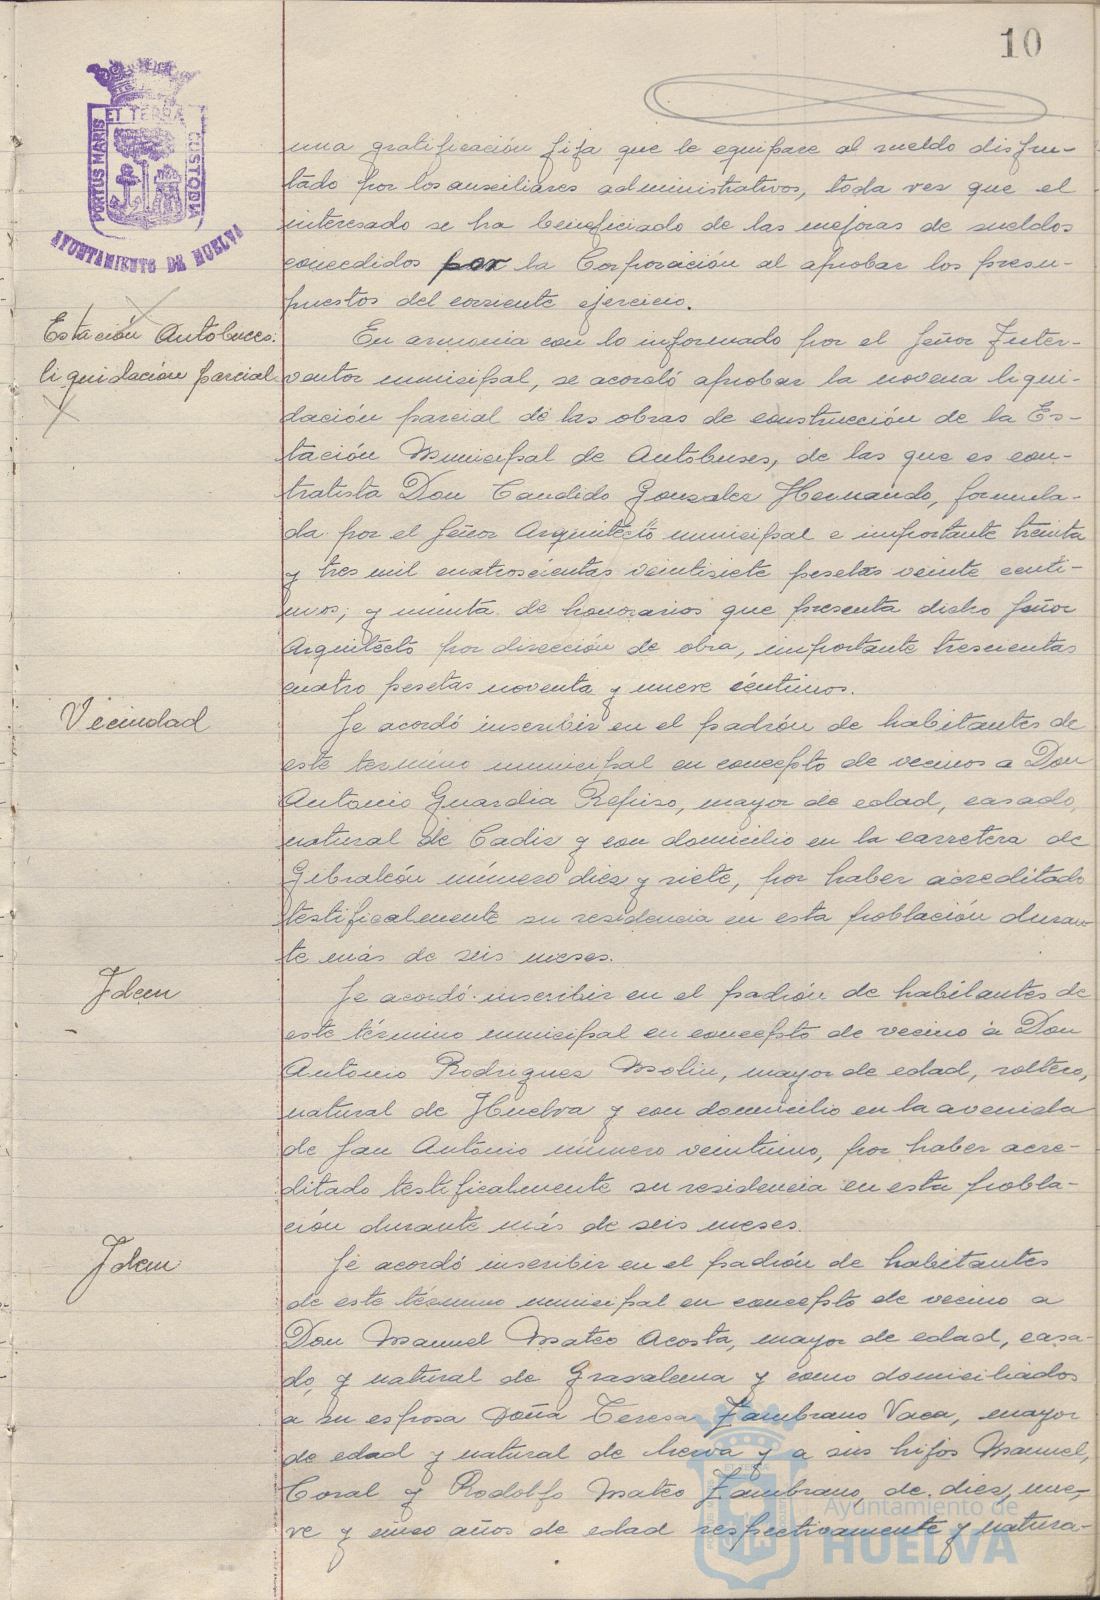 10
PORTUS MARIS ET TERRA CUSTODIA
AYUNTAMIENTO DE HUELVA
una gratificación fija que le equipare al sueldo disfru-
tado por los auxiliares administrativos, toda vez que el
interesado se ha beneficiado de las mejoras de sueldos
concedidos por la Corporación al aprobar los presu-
puestos del corriente ejercicio.
Estación Autobuses:
liquidación parcial
En armonia con lo informado por el Señor Inter-
ventor municipal, se acordó aprobar la novena liqui-
dación parcial de las obras de construcción de la Es-
tación Municipal de Autobuses, de las que es con-
tratista Don Candido Gonzalez Hernando, formula-
da por el Señor Arquitecto municipal e importante treinta
y tres mil cuatroscientas veintisiete pesetas veinte centi-
mos; y minuta de honorarios que presenta dicho Señor
Arquitecto por dirección de obra, importante trescientas
cuatro pesetas noventa y nueve céntimos.
Vecindad
Se acordó inscribir en el padrón de habitantes de
este termino municipal en concepto de vecinos a Don
Antonio Guardia Repiso, mayor de edad, casado,
natural de Cadiz y con domicilio en la carretera de
Gibraleón número diez y siete, por haber acreditado
testificalmente su residencia en esta población duran-
te más de seis meses.
Idem
Se acordó inscribir en el padrón de habitantes de
este término municipal en concepto de vecino a Don
Antonio Rodriguez Molin, mayor de edad, soltero,
natural de Huelva y con domicilio en la avenida
de San Antonio número veintiuno, por haber acre-
ditado testificalmente su residencia en esta pobla-
ción durante más de seis meses.
Idem
Se acordó inscribir en el padrón de habitantes
de este término municipal en concepto de vecino a
Don Manuel Mateo Acosta, mayor de edad, casa-
do, y natural de Grazalema y como domiciliados
a su esposa Doña Teresa Zambrano Vaca, mayor
de edad y natural de Nerva y a sus hijos Manuel,
Coral y Rodolfo Mateo Zambrano, de diez, nue-
ve y cinco años de edad respectivamente y natura-
Ayuntamiento de
HUELVA